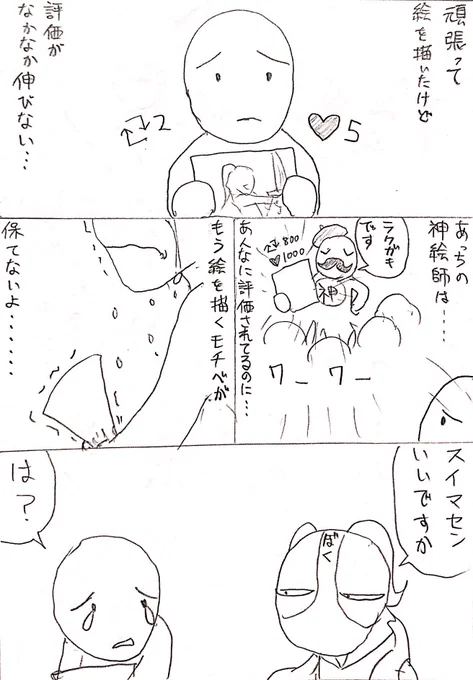 頑張って
絵を描いたけど
♥5
2
評価が
なかなか伸びない…
あっちの
神絵師は……
ラクガキ
です
800
♥1000
神
ワーワー
あんなに評価されてるのに…
もう絵を描くモチベが
保てないよ……
スイマセン
いいですか
ばく
は?